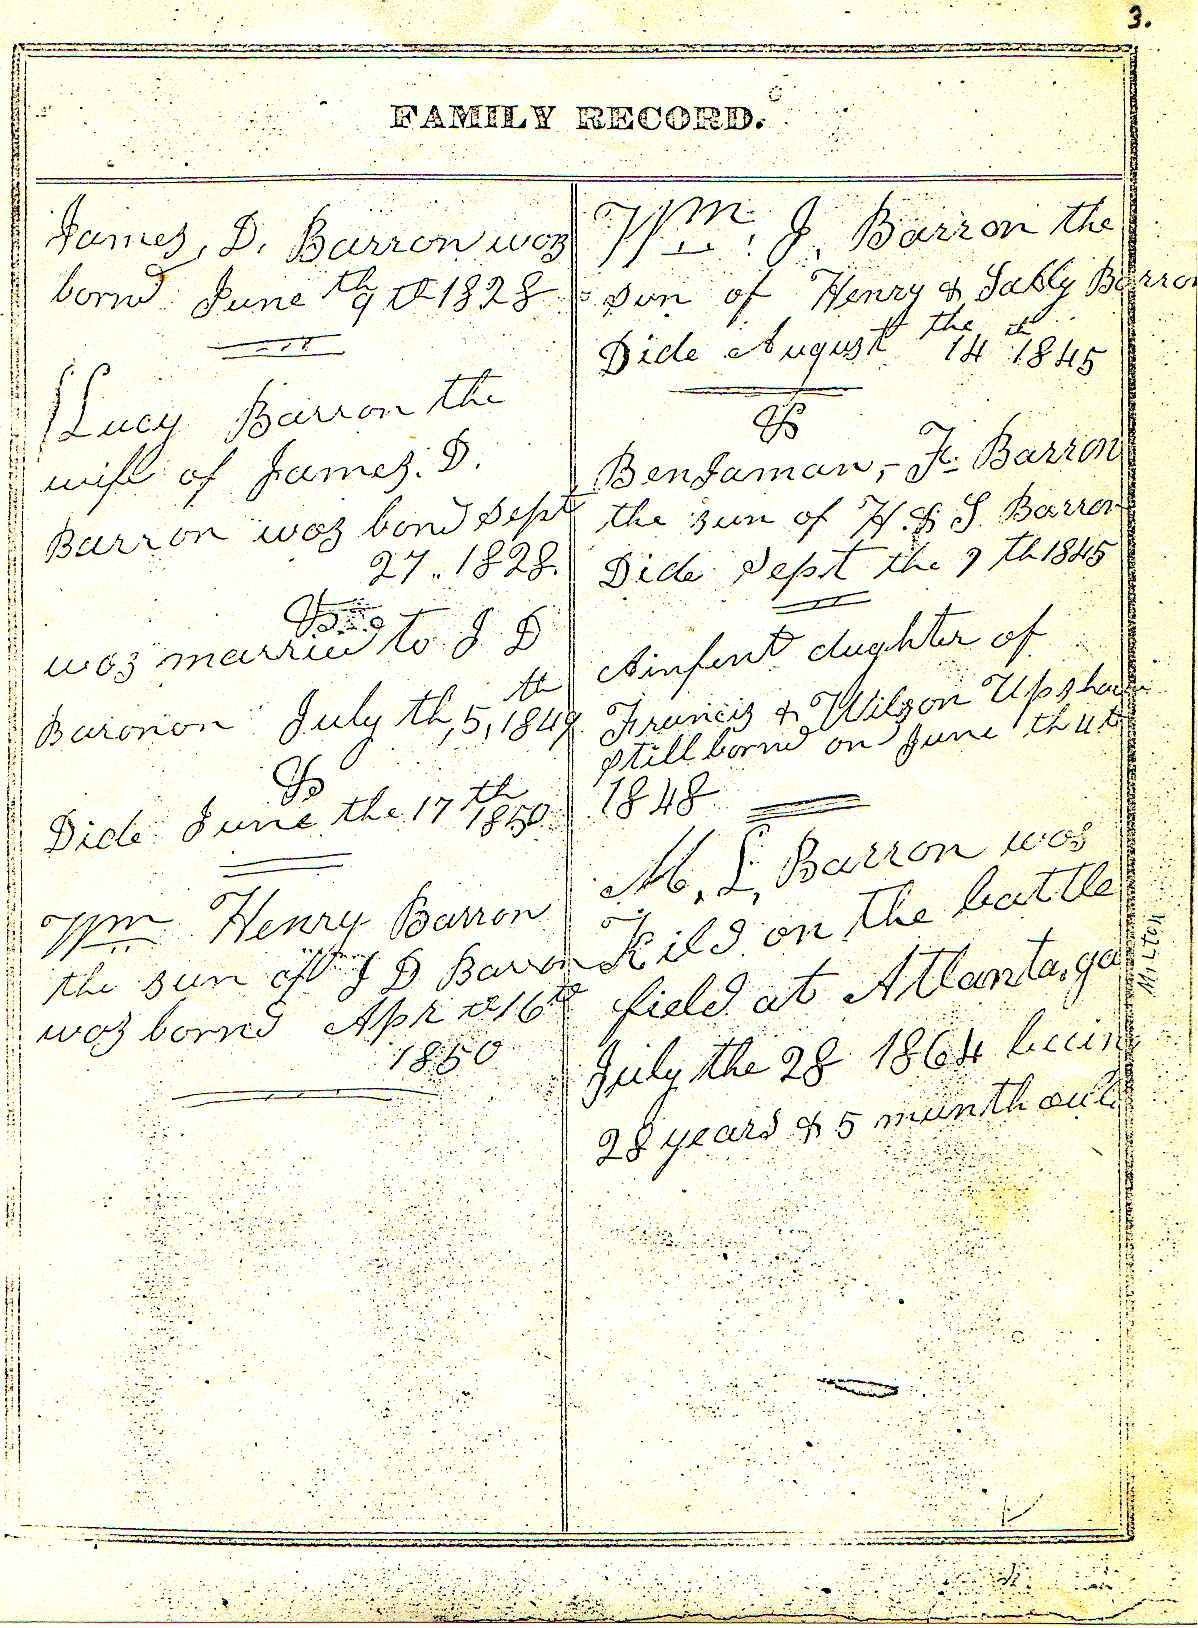 3.
FAMILY RECORD.
James, D. Barron woz
bornd June th 9 th 1828
Lucy Barron the
wife of James. D.
Barron woz bond Sept
27.. 1828.
&
woz married to J D
Baronon July th, 5, 1849
&
Dide June the 17 th 1850
Wm Henry Barron
the sun of J D Barron
woz bornd Apr th 16th
1850
Wm. J. Barron the
sun of Henry & Sably Barron
Dide August the 14 th 1845
&
Benjaman,- F. Barron
the sun of H. & S Barron
Dide Sept the 7 th 1845
Ainfent dughter of
Francis & Wilson Upshaw
still bornd on June th 4th
1848
M. L, Barron wos
Kild on the battle
field at Atlanta, ga
July the 28 1864 being
28 years & 5 munth ould
Milton